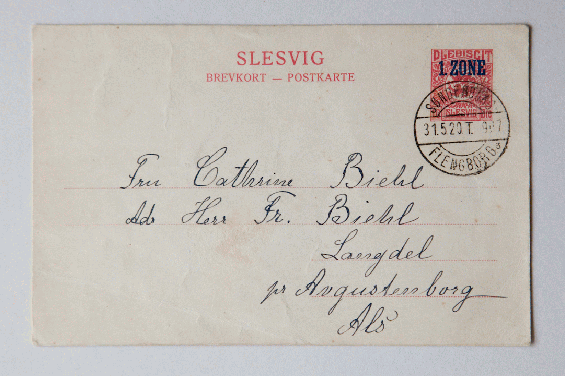 SLESVIG
BREVKORT — POSTKARTE
PLEBISCIT
1. ZONE
SLESVIG
31.5.20 T. 9-
FLENGBORG
Fru Cathrine Biehl
Adr Herr Fr. Biehl
Langdel
pr Avgustenborg
Als